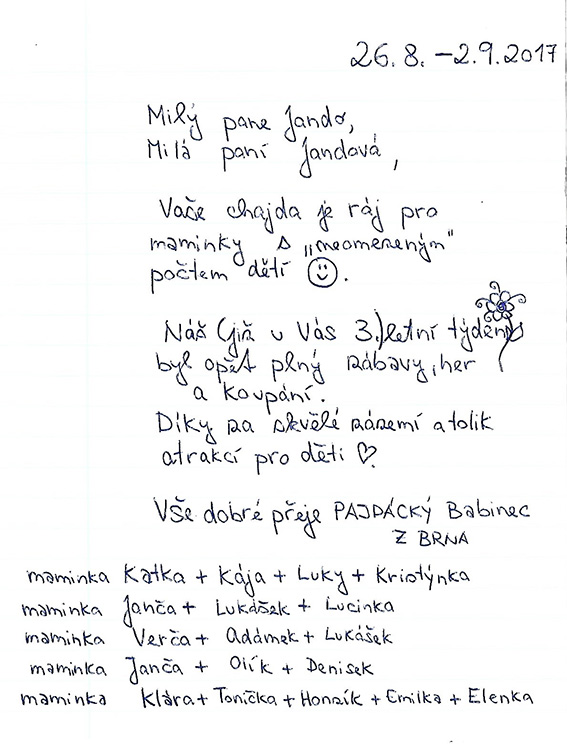 26.8. – 2.9.2017
Milý pane Jando,
Milá paní Jandová,
Vaše chajda je ráj pro
maminky s „neomezeným"
počtem dětí ☺.
Náš (již u Vás 3.) letní týden
byl opět plný zábavy, her
a koupání.
Díky za skvělé zázemí a tolik
atrakcí pro děti ♡.
Vše dobré přeje PAJDÁCKÝ Babinec
Z BRNA
maminka Katka + Kája + Luky + Kristýnka
maminka Janča + Lukášek + Lucinka
maminka Verča + Adámek + Lukášek
maminka Janča + Olík + Denisek
maminka Klára + Tonička + Honzík + Emilka + Elenka